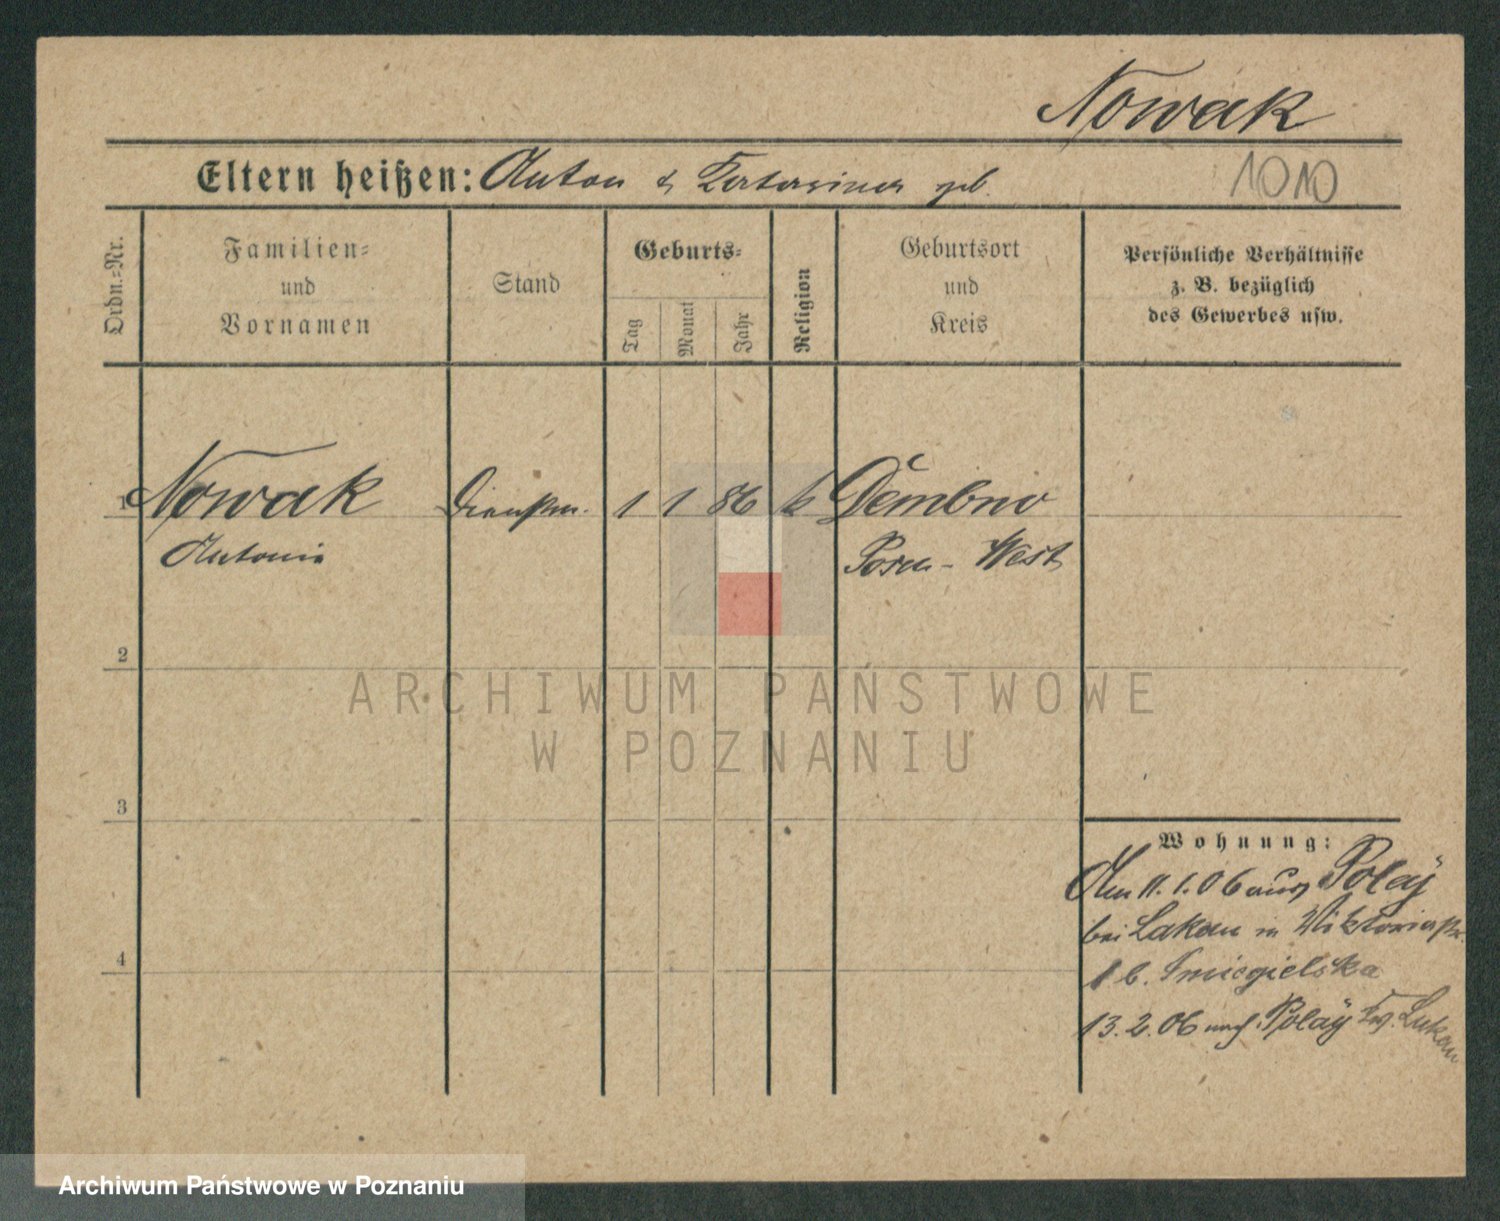 Nowak
Eltern heißen: Anton & Katarina geb.
1010
Ordn.=Nr.
Familien=
und
Vornamen
Stand
Geburts=
Tag
Monat
Jahr
Religion
Geburtsort
und
Kreis
Persönliche Verhältnisse
z. B. bezüglich
des Gewerbes usw.
1 Nowak 1 1 86 k Dembno
Antonie Posen - West
2
3
4
Wohnung:
Am 11.1.06 aus
bei in Viktoriastr.
1 b. Smiegielska
13.2.06 nach
ARCHIWUM PAŃSTWOWE
W POZNANIU
Archiwum Państwowe w Poznaniu